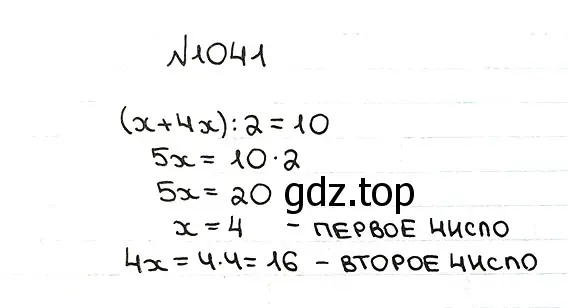 №1041
(x+4x):2=10
5x=10·2
5x=20
gdz.top
x=4 - ПЕРВОЕ ЧИСЛО
4x=4.4=16 - ВТОРОЕ ЧИСЛО